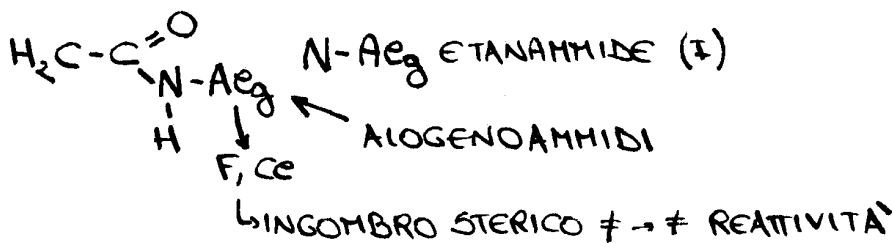 H₂C-C=O
N-Alg N-Alg ETANAMMIDE (I)
H ALOGENOAMMIDI
F, Cl
↳INGOMBRO STERICO ≠ → ≠ REATTIVITÀ